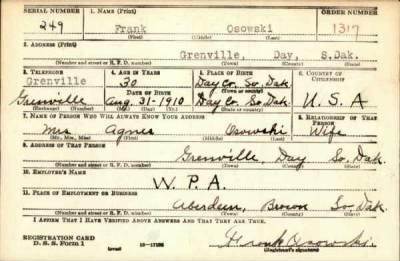 SERIAL NUMBER 1. NAME (Print) ORDER NUMBER
249 Frank Osowski 1317
(First) (Middle) (Last)
2. ADDRESS (Print)
Grenville, Day, S.Dak.
(Number and street or R. F. D. number) (Town) (County) (State)
3. TELEPHONE 4. AGE IN YEARS 5. PLACE OF BIRTH 6. COUNTRY OF CITIZENSHIP
Grenville 30 Day Co. So. Dak.
DATE OF BIRTH (Town)
Grenville Aug. 31-1910 Day Co. So. Dak. U.S.A
(Exchange) (Mo.) (Day) (Yr.) (State)
7. NAME OF PERSON WHO WILL ALWAYS KNOW YOUR ADDRESS 8. RELATIONSHIP OF THAT PERSON
Mrs Agnes Osowski Wife
(Mr., Mrs., Miss) (First) (Middle) (Last)
9. ADDRESS OF THAT PERSON
Grenville, Day So. Dak.
(Number and street or R. F. D. number) (Town) (County) (State)
10. EMPLOYER'S NAME
W.P.A.
11. PLACE OF EMPLOYMENT OR BUSINESS
Aberdeen, Brown So. Dak.
(Number and street or R. F. D. number) (Town) (County) (State)
I AFFIRM THAT I HAVE VERIFIED ABOVE ANSWERS AND THAT THEY ARE TRUE.
REGISTRATION CARD
D. S. S. Form 1 Frank Osowski
(Registrant's signature)